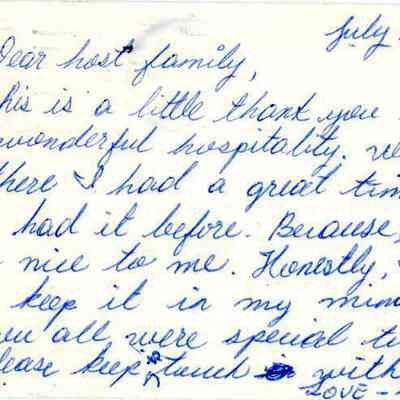 July
Dear host family,
his is a little thank you
wonderful hospitality.
there I had a great tim
had it before. Because,
nice to me. Honestly,
keep it in my min
all were special t
lease keep in touch with
LOVE -